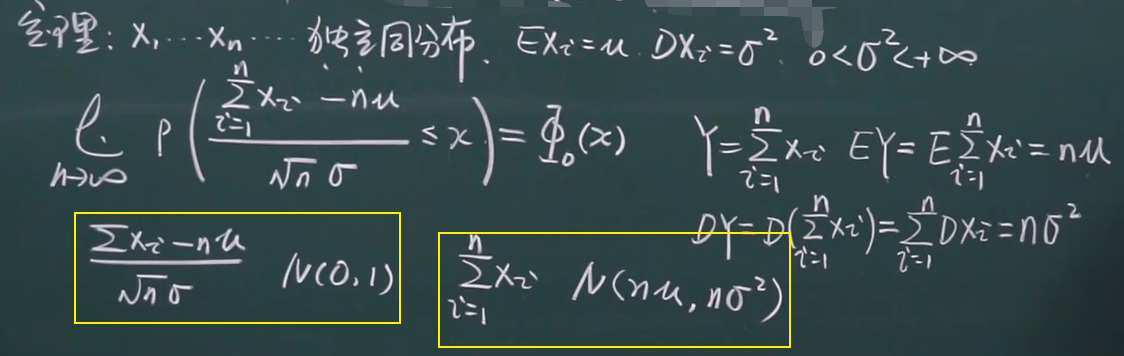 定理: X₁ ⋯ Xₙ ⋯ 独立同分布. EXᵢ=μ. DXᵢ=σ². 0<σ²<+∞
lim n→∞ P( (∑ᵢ₌₁ⁿ Xᵢ - nμ) / (√n σ) ≤ x ) = Φ₀(x)
Y = ∑ᵢ₌₁ⁿ Xᵢ EY = E∑ᵢ₌₁ⁿ Xᵢ = nμ
DY = D(∑ᵢ₌₁ⁿ Xᵢ) = ∑ᵢ₌₁ⁿ DXᵢ = nσ²
(∑Xᵢ - nμ) / (√n σ) N(0,1)
∑ᵢ₌₁ⁿ Xᵢ N(nμ, nσ²)